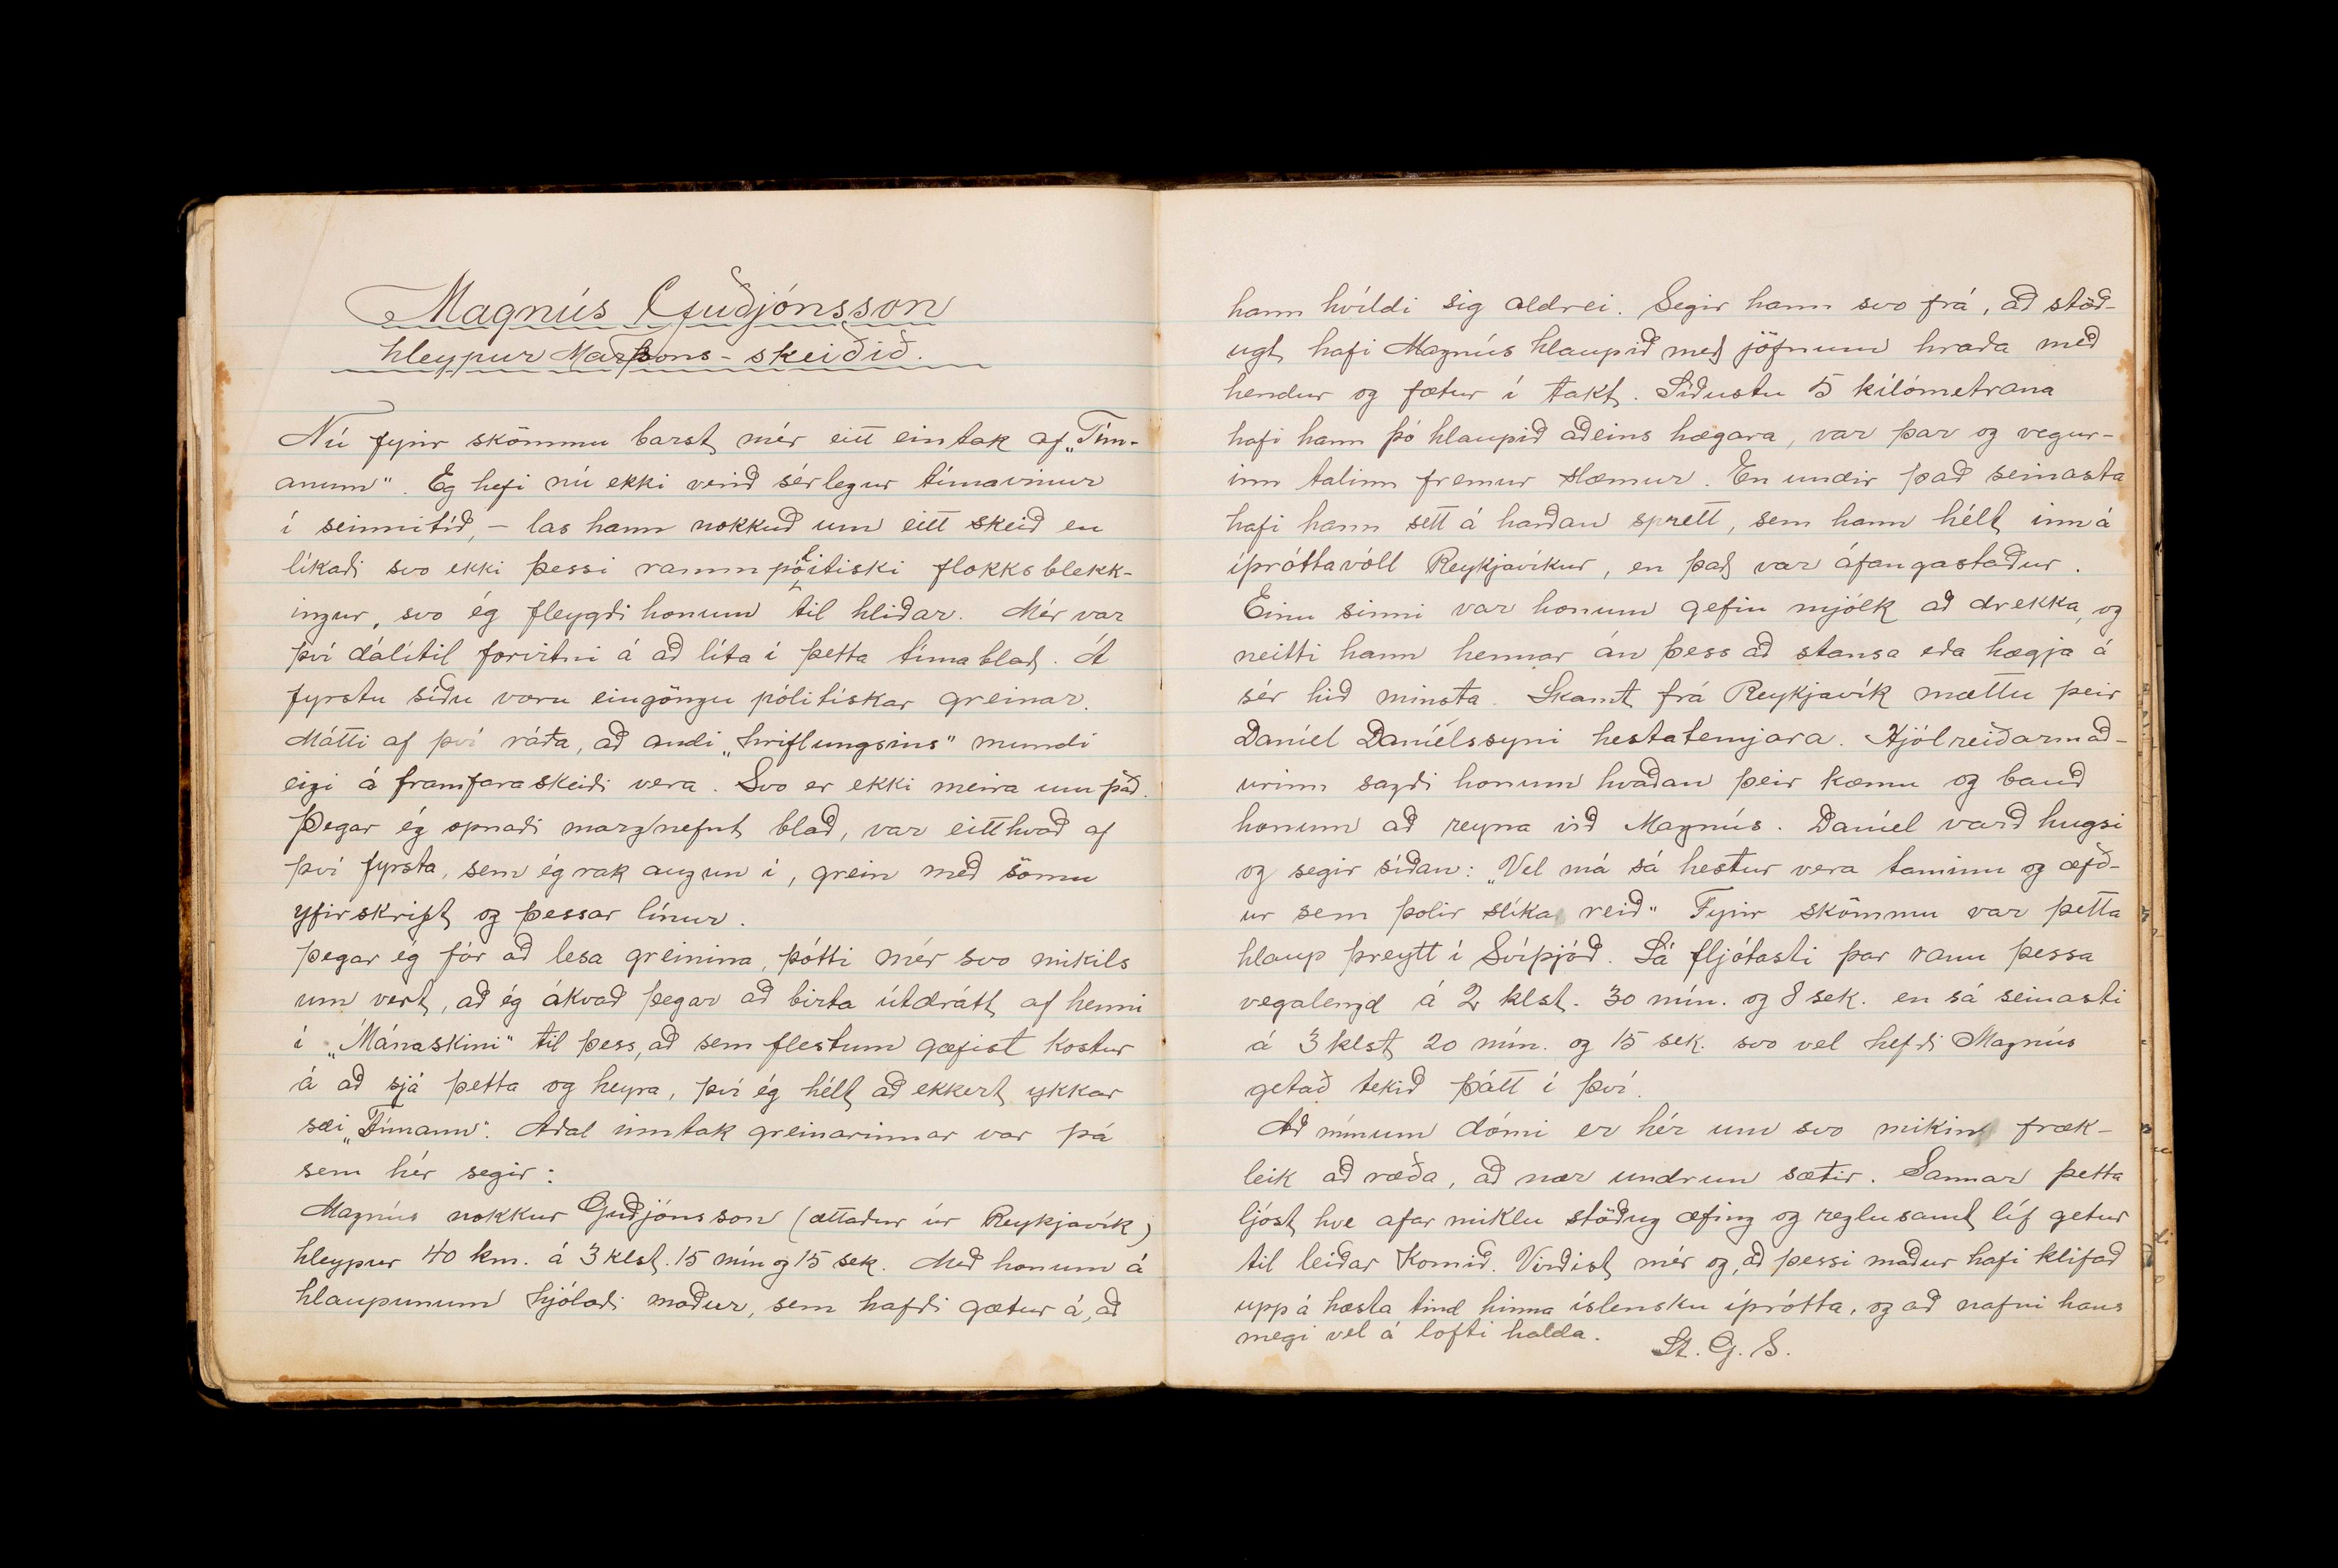 Magnús Guðjónsson
hleypur Maraþons-skeiðið.
Nú fyrir skömmu barst mér eitt eintak af „Tím-
anum". Ég hefi nú ekki verið sérlegur tímavinur
í seinnitíð, - las hann nokkuð um eitt skeið en
líkaði svo ekki þessi ramm pólitiski flokksblekk-
ingur, svo ég fleygði honum til hliðar. Mér var
því dálítil forvitni á að líta í þetta tímablað. Á
fyrstu síðu voru eingöngu pólitískar greinar.
Mátti af því ráða, að andi „hriflungsins" mundi
eigi á framfaraskeiði vera. Svo er ekki meira um það.
Þegar ég opnaði margnefnt blað, var eitthvað af
því fyrsta, sem ég rak augun í, grein með sömu
yfirskrift og þessar línur.
Þegar ég fór að lesa greinina, þótti mér svo mikils
um vert, að ég ákvað þegar að birta útdrátt af henni
í „Mánaskini" til þess, að sem flestum gæfist kostur
á að sjá þetta og heyra, því ég hélt að ekkert ykkar
sæi „Tímann". Aðal inntak greinarinnar var þá
sem hér segir:
Magnús nokkur Guðjónsson (ættaður úr Reykjavík)
hleypur 40 km. á 3 klst. 15 mín og 15 sek. Með honum á
hlaupunum hjólaði maður, sem hafði gætur á, að
hann hvíldi sig aldrei. Segir hann svo frá, að stöð-
ugt hafi Magnús hlaupið með jöfnum hraða með
hendur og fætur í takt. Síðustu 15 kílómetrana
hafi hann þó hlaupið aðeins hægara, var þar og vegur-
inn talinn fremur slæmur. En undir það seinasta
hafi hann sett á harðan sprett, sem hann hélt inn á
íþróttavöll Reykjavíkur, en það var áfangastaður.
Einu sinni var honum gefin mjólk að drekka, og
neitti hann hennar án þess að stansa eða hægja á
sér hið minsta. Skamt frá Reykjavík mættu þeir
Daníel Daníelssyni hestatemjara. Hjólreiðarmað-
urinn sagði honum hvaðan þeir kæmu og bauð
honum að reyna við Magnús. Daníel varð hugsi
og segir síðan: „Vel má sá hestur vera taminn og æfð-
ur sem þolir slíka reið" Fyrir skömmu var þetta
hlaup þreytt í Svíþjóð. Sá fljótasti þar rann þessa
vegalengd á 2 klst. 30 mín. og 8 sek. en sá seinasti
á 3 klst 20 mín. og 15 sek. svo vel hefði Magnús
getað tekið þátt í því.
Að mínum dómi er hér um svo mikin fræk-
leik að ræða, að nær undrun sætir. Sannar þetta
ljóst hve afar miklu stöðug æfing og reglusamt líf getur
til leiðar komið. Virðist mér og, að þessi maður hafi klifað
upp á hæsta tind hinna íslensku íþrótta, og að nafni hans
megi vel á lofti halda.
St. G. S.